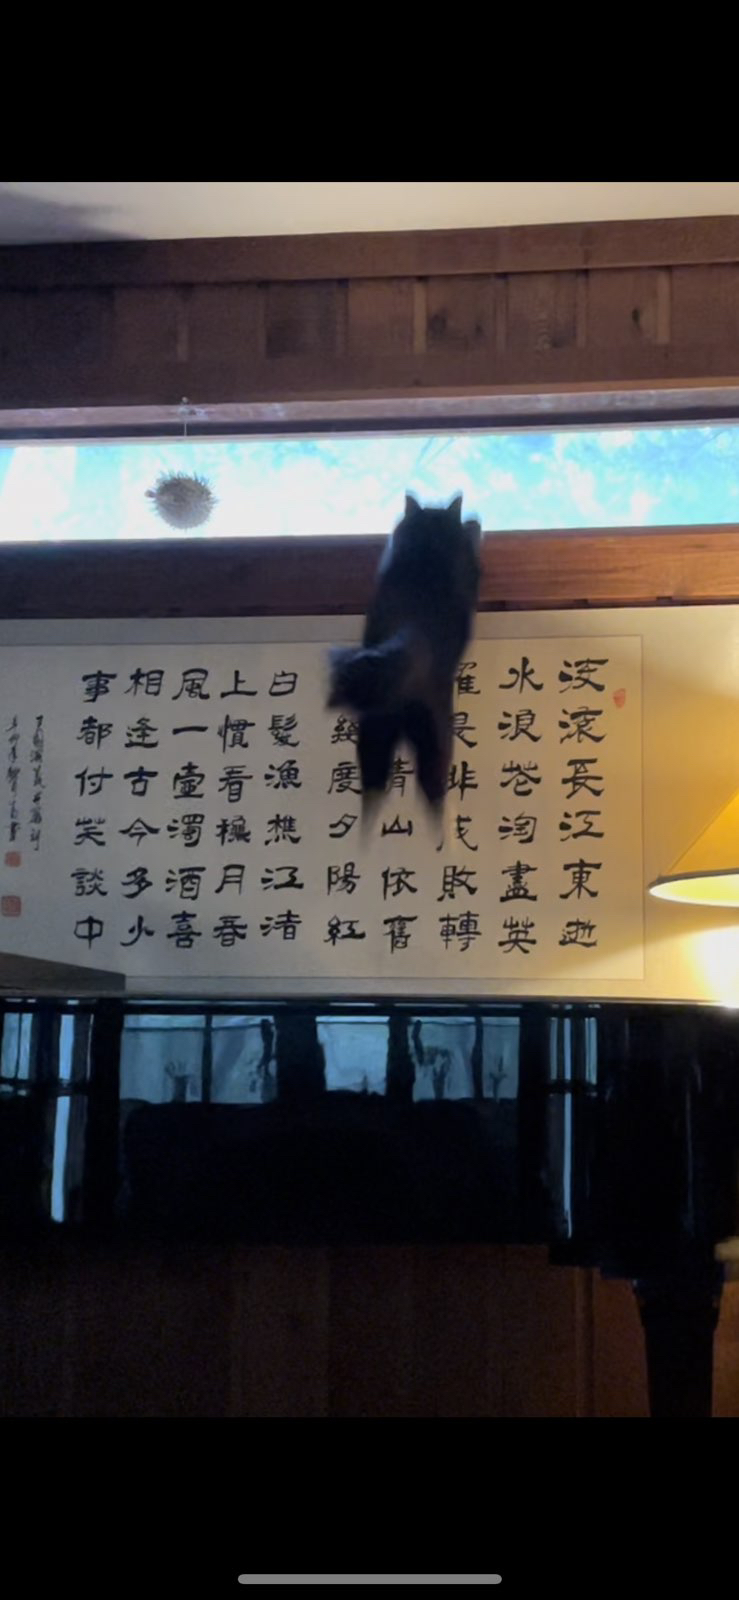 滚滚長江東逝
水浪花淘盡英
非成敗轉
青山依舊
幾度夕陽紅
白髮漁樵江渚
上慣看秋月春
風一壺濁酒喜
相逢古今多少
事都付笑談中